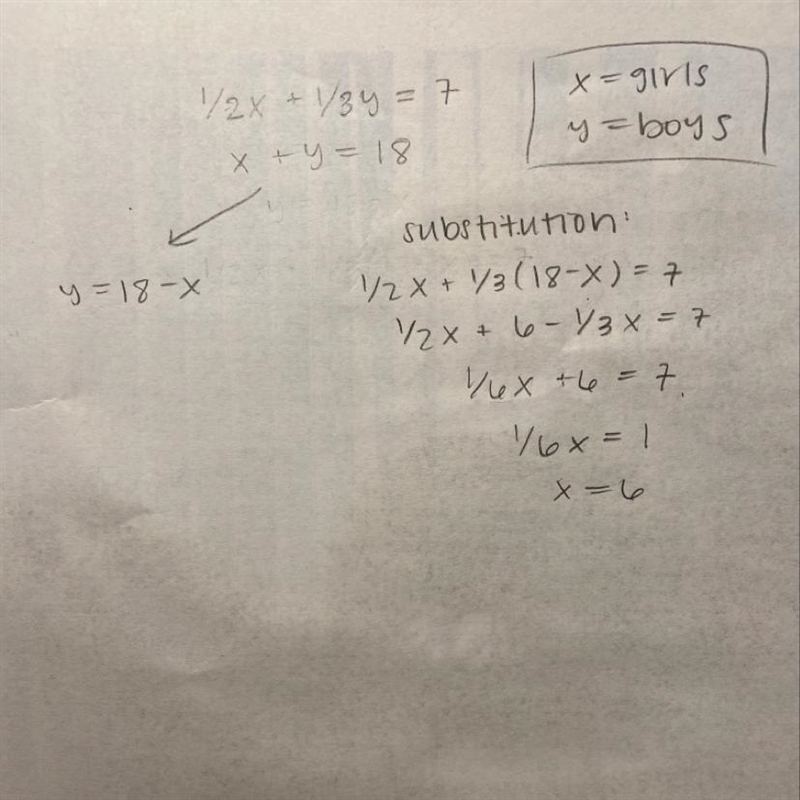 1/2x + 1/3y = 7
x + y = 18
x = girls
y = boys
y = 18 - x
substitution:
1/2x + 1/3(18-x) = 7
1/2x + 6 - 1/3x = 7
1/6x + 6 = 7.
1/6x = 1
x = 6